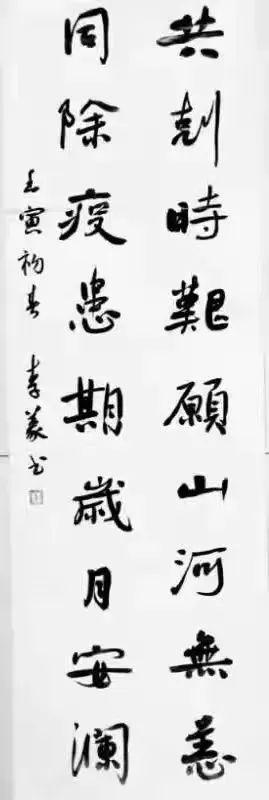 共剋時艱願山河無恙
同除疫患期歲月安瀾
壬寅初春 李義书